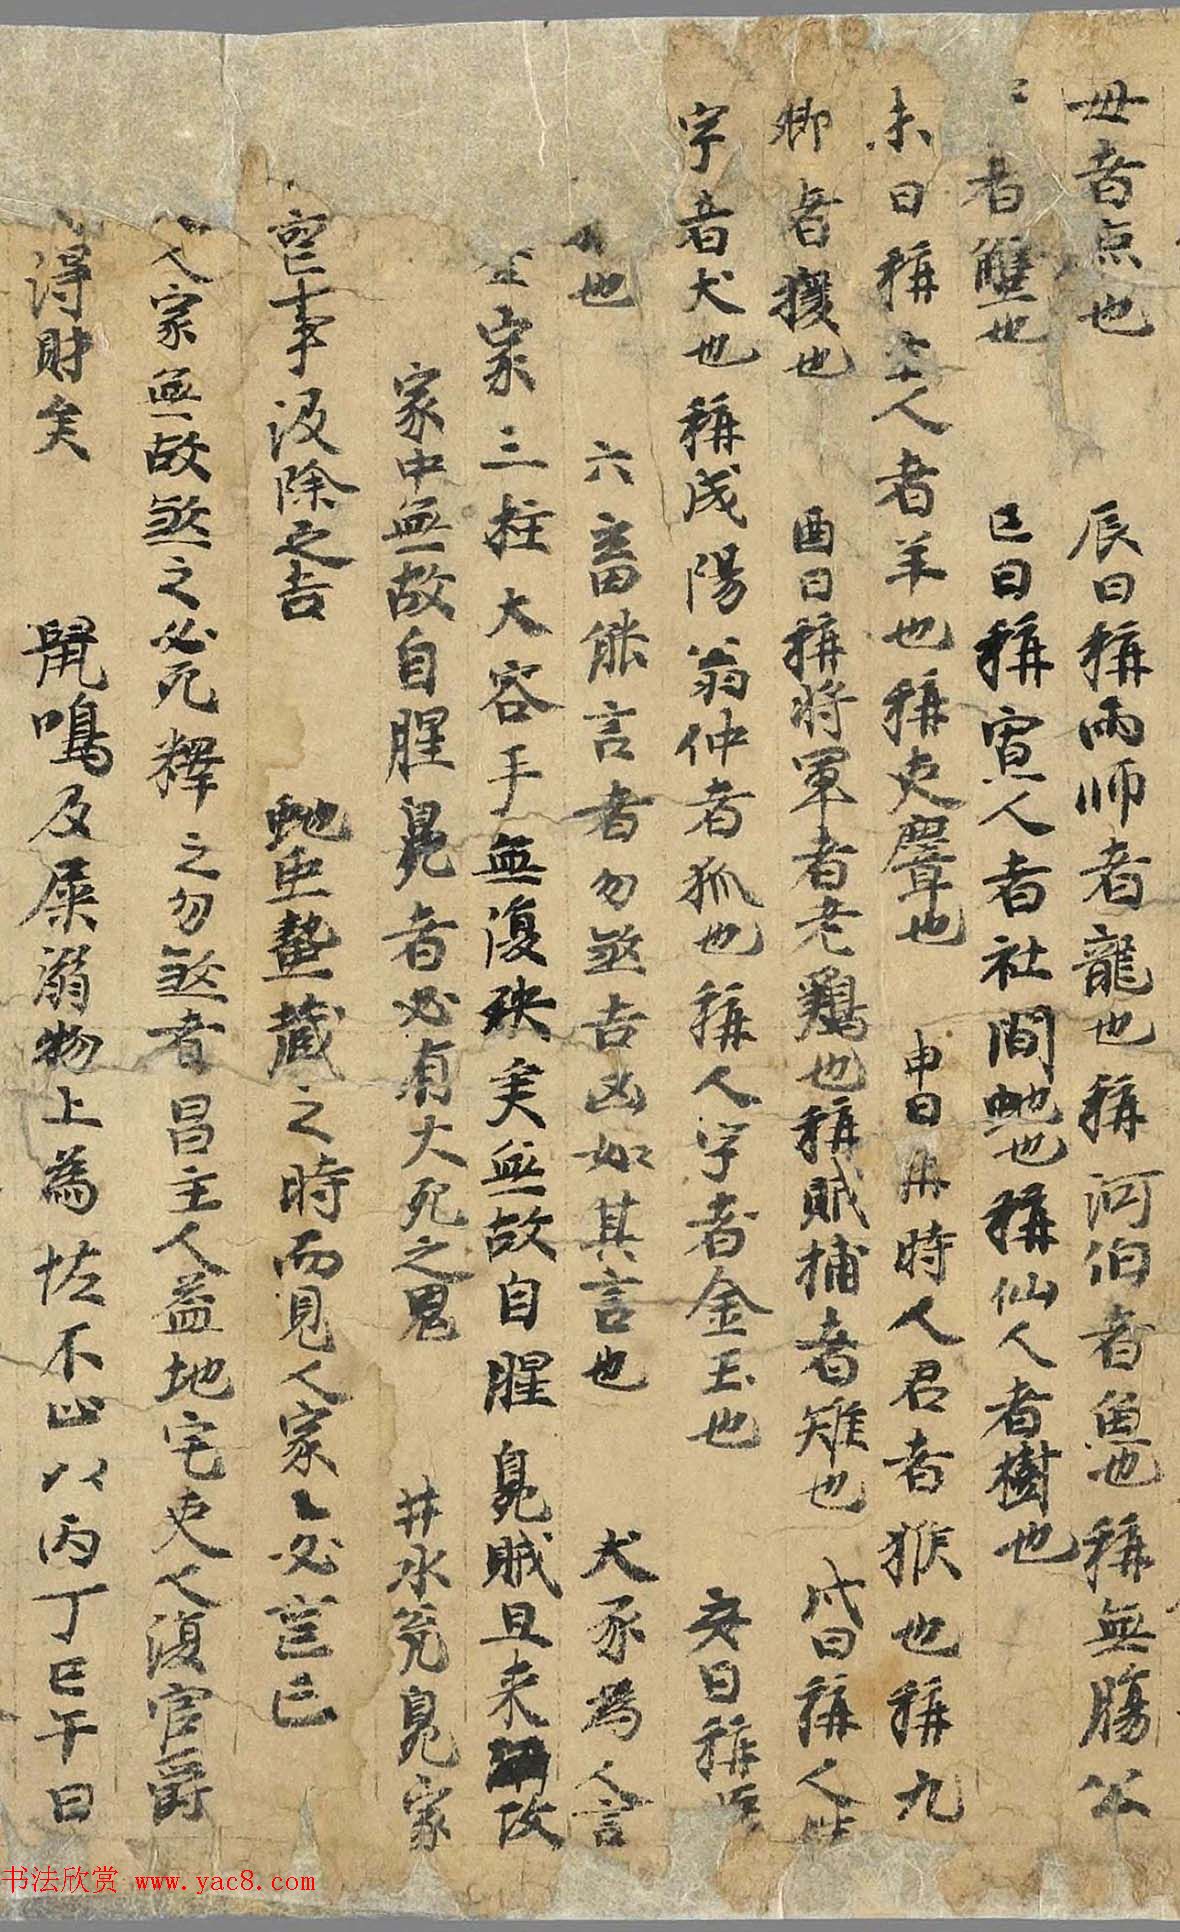 毋者点也 辰日稱雨师者龍也稱河伯者魚也稱無腸公
者蟹也 巳日稱寡人者社間虵也稱仙人者樹也
未日稱主人者羊也稱吏者麞也 申日稱時人君者猴也稱九
卿者猨也 酉日稱将軍者老鷄也稱賊捕者雉也 戌日稱人姓
字者犬也稱成陽翁仲者狐也稱人字者金玉也 亥日稱
也 六畜能言者勿煞吉凶如其言也 犬豕為人言
家三柱大容手無復殃矣無故自腥臭賊且来汝
家中無故自腥臭者必有大死之鬼 井水臭家
事汲除之吉 虵虫蟄藏之時而見人家〻必言已
人家無故煞之必死釋之勿煞者昌主人益地宅吏人復官爵
得財矣 鼠鳴及屎溺物上為恠不止以丙丁巳午日
书法欣赏 www.yac8.com